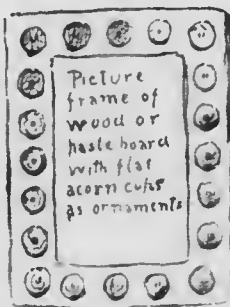 Picture
frame of
wood or
pasteboard
with flat
acorn cups
as ornaments